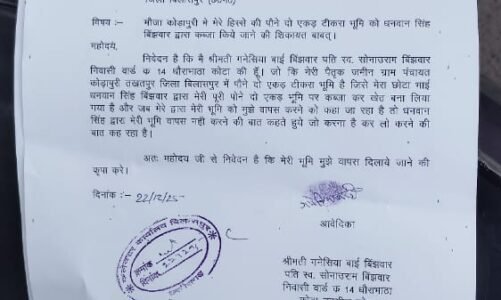 जिला बिलासपुर (छ०ग०)
विषय :- मौजा कोडापुरी मे मेरे हिस्से की पौने दो एकड़ टीकरा भूमि को धनवान सिंह
बिंझवार द्वारा कब्जा किये जाने की शिकायत बाबत्।
महोदय,
निवेदन है कि मै श्रीमती गनेसिया बाई बिंझवार पति स्व. सोनाउराम बिंझवार
निवासी वार्ड क 14 धौराभाठा कोटा की हूँ। जो कि मेरी पैतृक जमीन ग्राम पंचायत
कोड़ापुरी तखतपुर जिला बिलासपुर में पौने दो एकड़ टीकरा भूमि है जिसे मेरा छोटा भाई
धनवान सिंह बिंझवार द्वारा मेरी पूरी पोने दो एकड़ भूमि पर कब्जा कर खेत बना लिया
गया है और जब मेरे द्वारा मेरी भूमि को मुझे वापस करने को कहा जा रहा है तो धनवान
सिंह द्वारा मेरी भूमि वापस नही करने की बात कहते हुये जो करना है कर लो करने की
बात कह रहा है।
अतः महोदय जी से निवेदन है कि मेरी भूमि मुझे वापस दिलाये जाने की
कृपा करे।
दिनांक :- 22/12/25
आवेदिका
श्रीमती गनेसिया बाई बिंझवार
पति स्व. सोनाउराम बिंझवार
निवासी वार्ड क 14 धौराभाठा